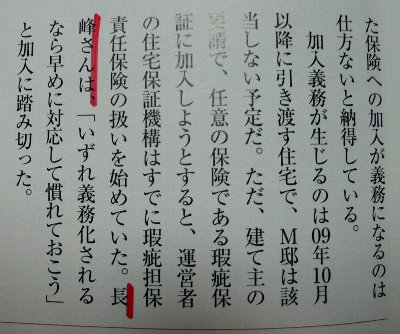 た保険への加入が義務になるのは
仕方ないと納得している。
加入義務が生じるのは09年10月
以降に引き渡す住宅で、M邸は該
当しない予定だ。ただ、建て主の
要請で、任意の保険である瑕疵保
証に加入しようとすると、運営者
の住宅保証機構はすでに瑕疵担保
責任保険の扱いを始めていた。長
峰さんは、「いずれ義務化される
なら早めに対応して慣れておこう」
と加入に踏み切った。